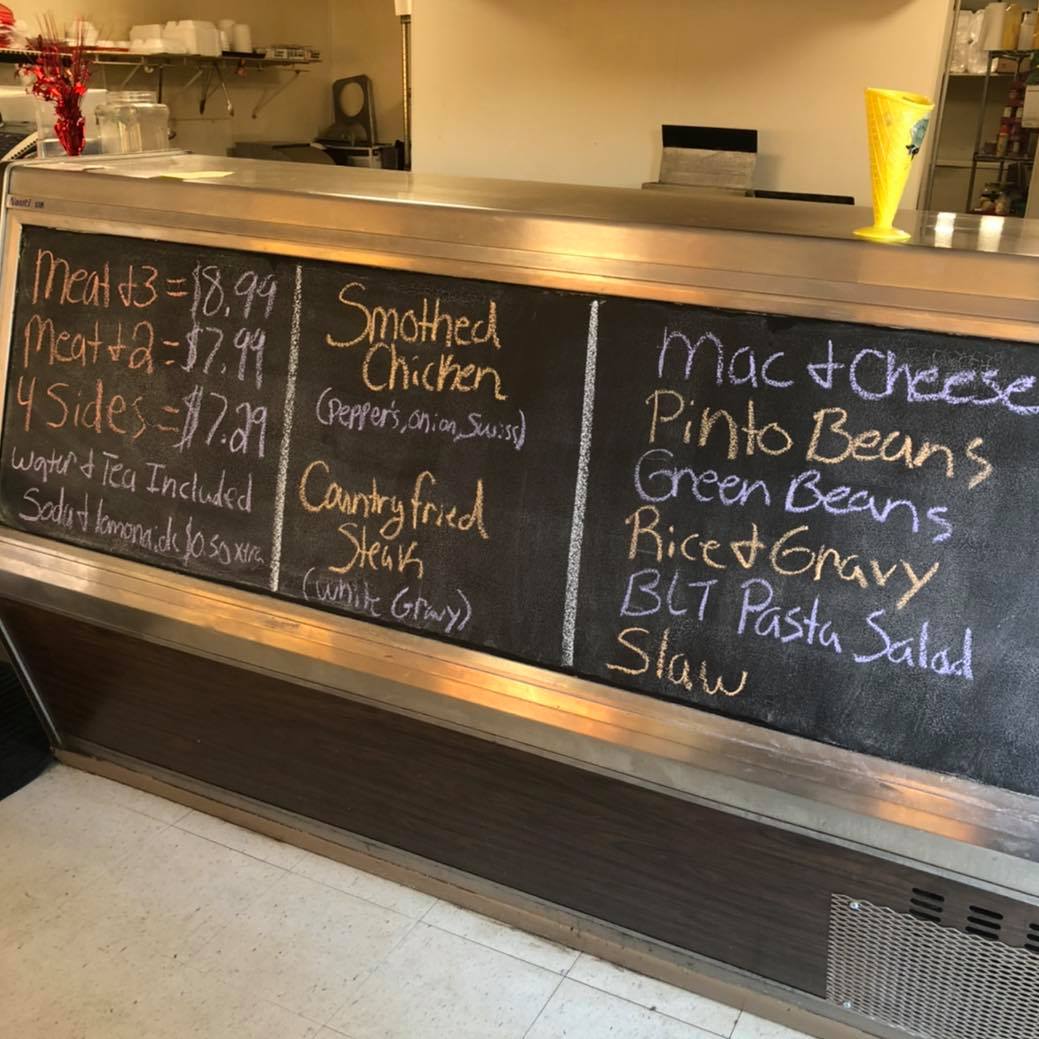 Meat + 3 = $8.99
Meat + 2 = $7.99
4 Sides = $7.29
Water + Tea Included
Soda + lemonaide $0.50 xtra
Smothed
Chicken
(peppers, onion, Swiss)
Country fried
Steak
(White Gravy)
Mac + Cheese
Pinto Beans
Green Beans
Rice + Gravy
BLT Pasta Salad
Slaw